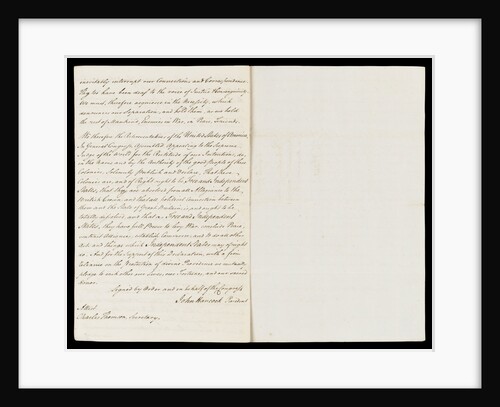 inevitably interrupt our Connections and Correspondence.
They too have been deaf to the voice of Justice & Consanguinity.
We must, therefore acquiesce in the Necessity, which
denounces our Separation, and hold them, as we hold
the rest of Mankind, Enemies in War, in Peace, Friends.
We therefore the Representatives of the United States of America,
In General Congress, Assembled, Appealing to the Supreme
Judge of the World for the Rectitude of our Intentions, do,
in the Name and by the Authority of the good People of these
Colonies, Solemnly Publish and Declare, That these
Colonies are, and of Right ought to be, Free and Independent
States, that they are absolved from all Allegiance to the
British Crown, and that all Political connection between
them and the State of Great Britain, is, and ought to be
totally dissolved; and that as Free and Independent
States, they have full Power to levy War, conclude Peace,
contract Alliances, establish Commerce, and to do all other
Acts and things which Independent States may of right
do. And for the Support of this Declaration, with a firm
reliance on the Protection of divine Providence, we mutually
pledge to each other our Lives, our Fortunes, and our sacred
Honor.
Signed by Order and in behalf of the Congress
John Hancock President
Attest
Charles Thomson Secretary.